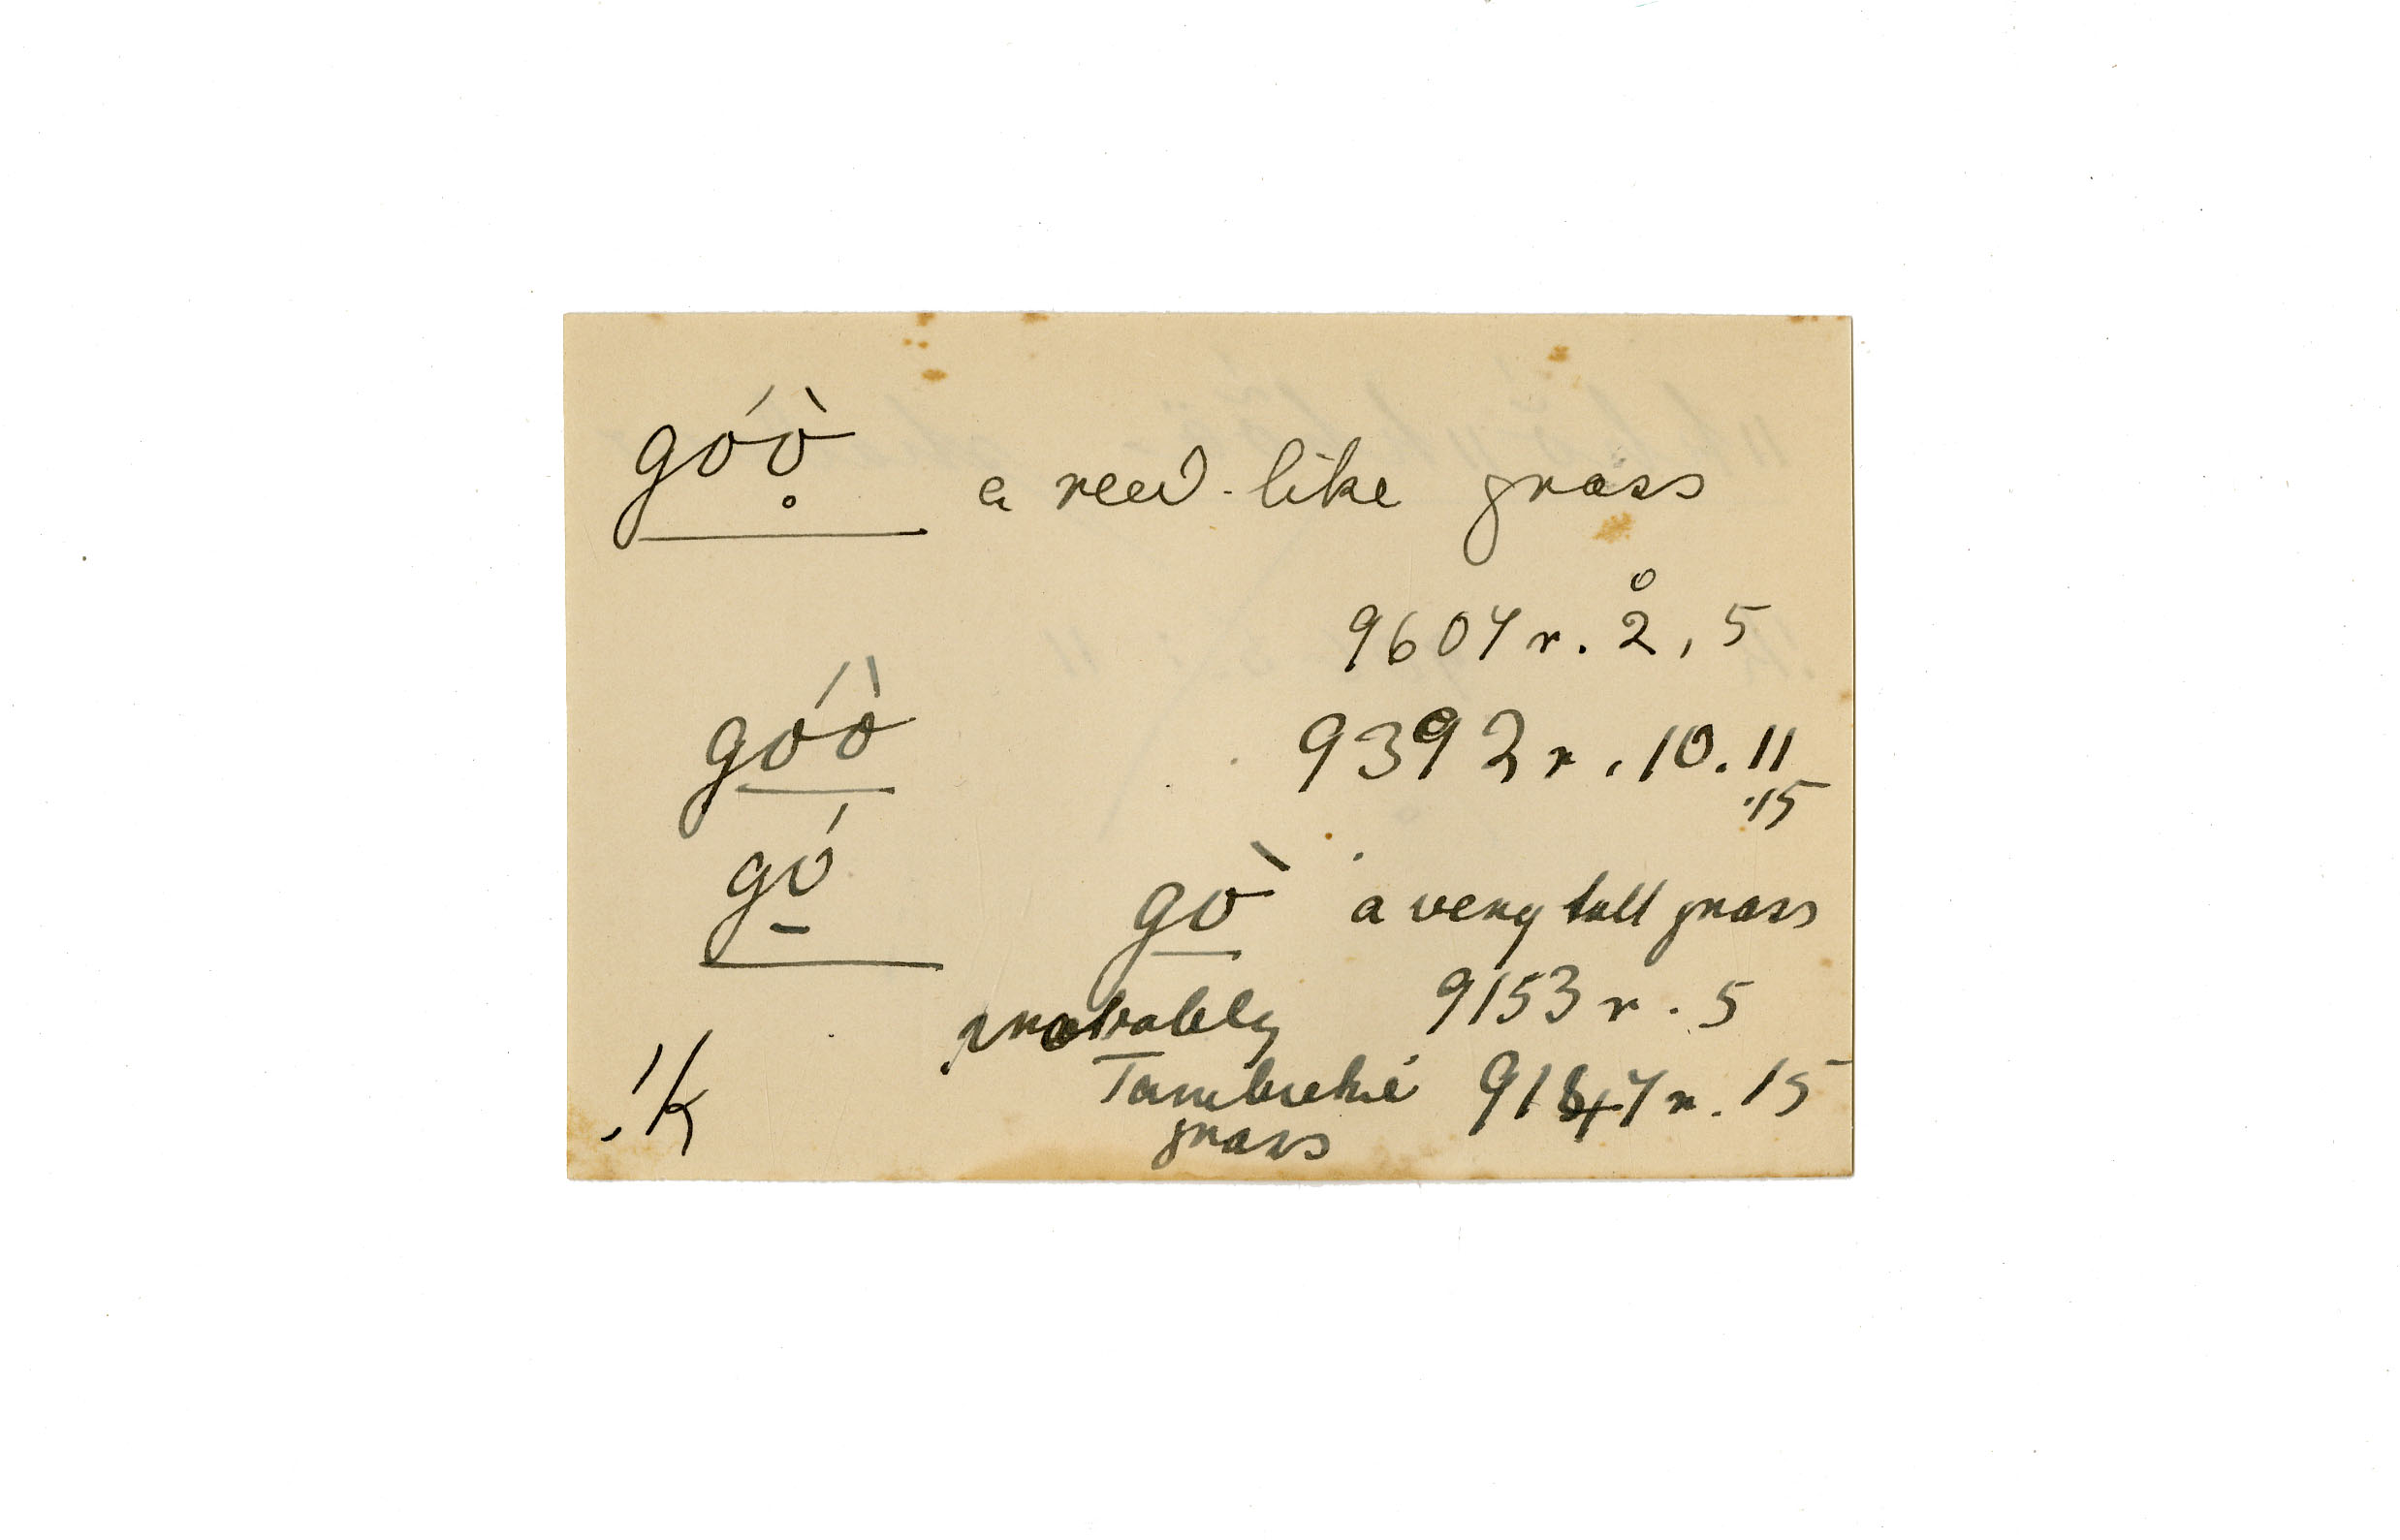 góò̥ a reed-like grass
9607 r. 2̊, 5
góò 9392 r. 10. 11
.15
gó̱ gò a very tall grass
probably 9153 r. 5
Tambukié 9147 r. 15
!k grass